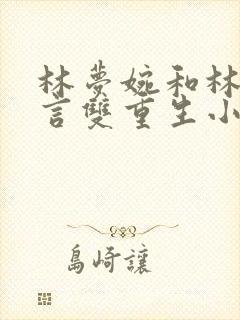 林夢婉和林
言雙重生小
島崎讓